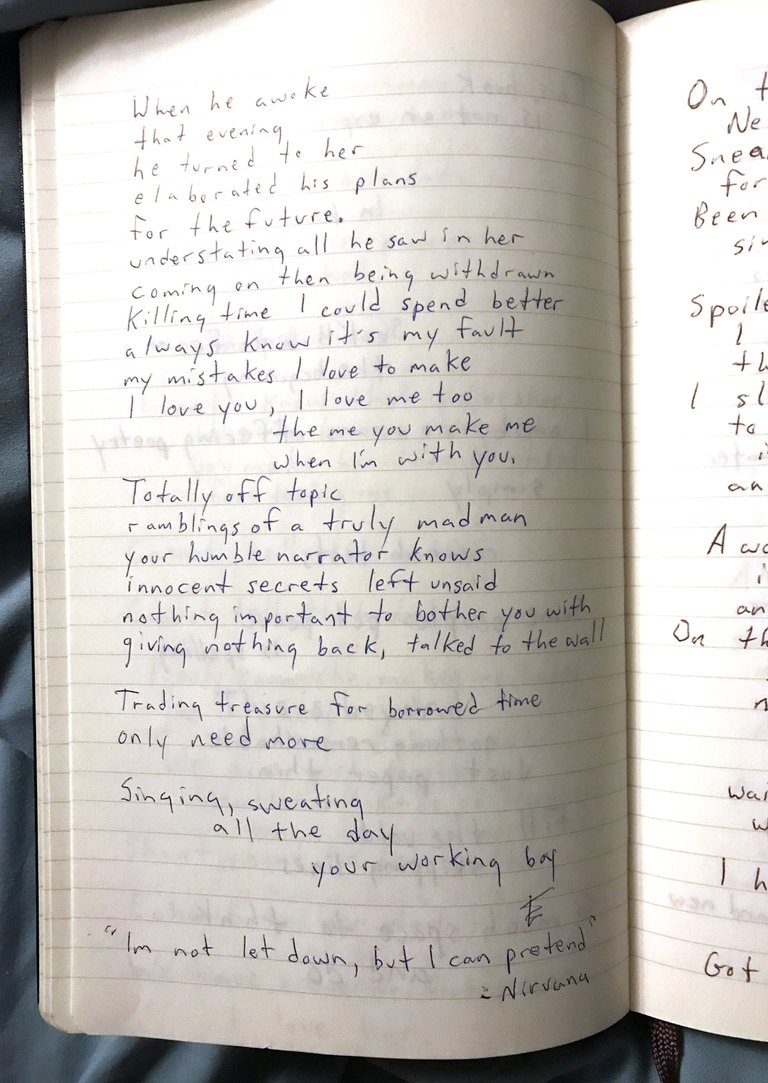 When he awoke
that evening
he turned to her
elaborated his plans
for the future.
understating all he saw in her
coming on then being withdrawn
Killing time I could spend better
always know it's my fault
my mistakes I love to make
I love you, I love me too
the me you make me
when I'm with you.
Totally off topic
ramblings of a truly mad man
your humble narrator knows
innocent secrets left unsaid
nothing important to bother you with
giving nothing back, talked to the wall
Trading treasure for borrowed time
only need more
Singing, sweating
all the day
your working boy
"Im not let down, but I can pretend"
- Nirvana
On
Ne
Snea
for
Been
sin
Spoile
I
th
I sl
to
an
A wo
an
On th
wai
w
I h
Got